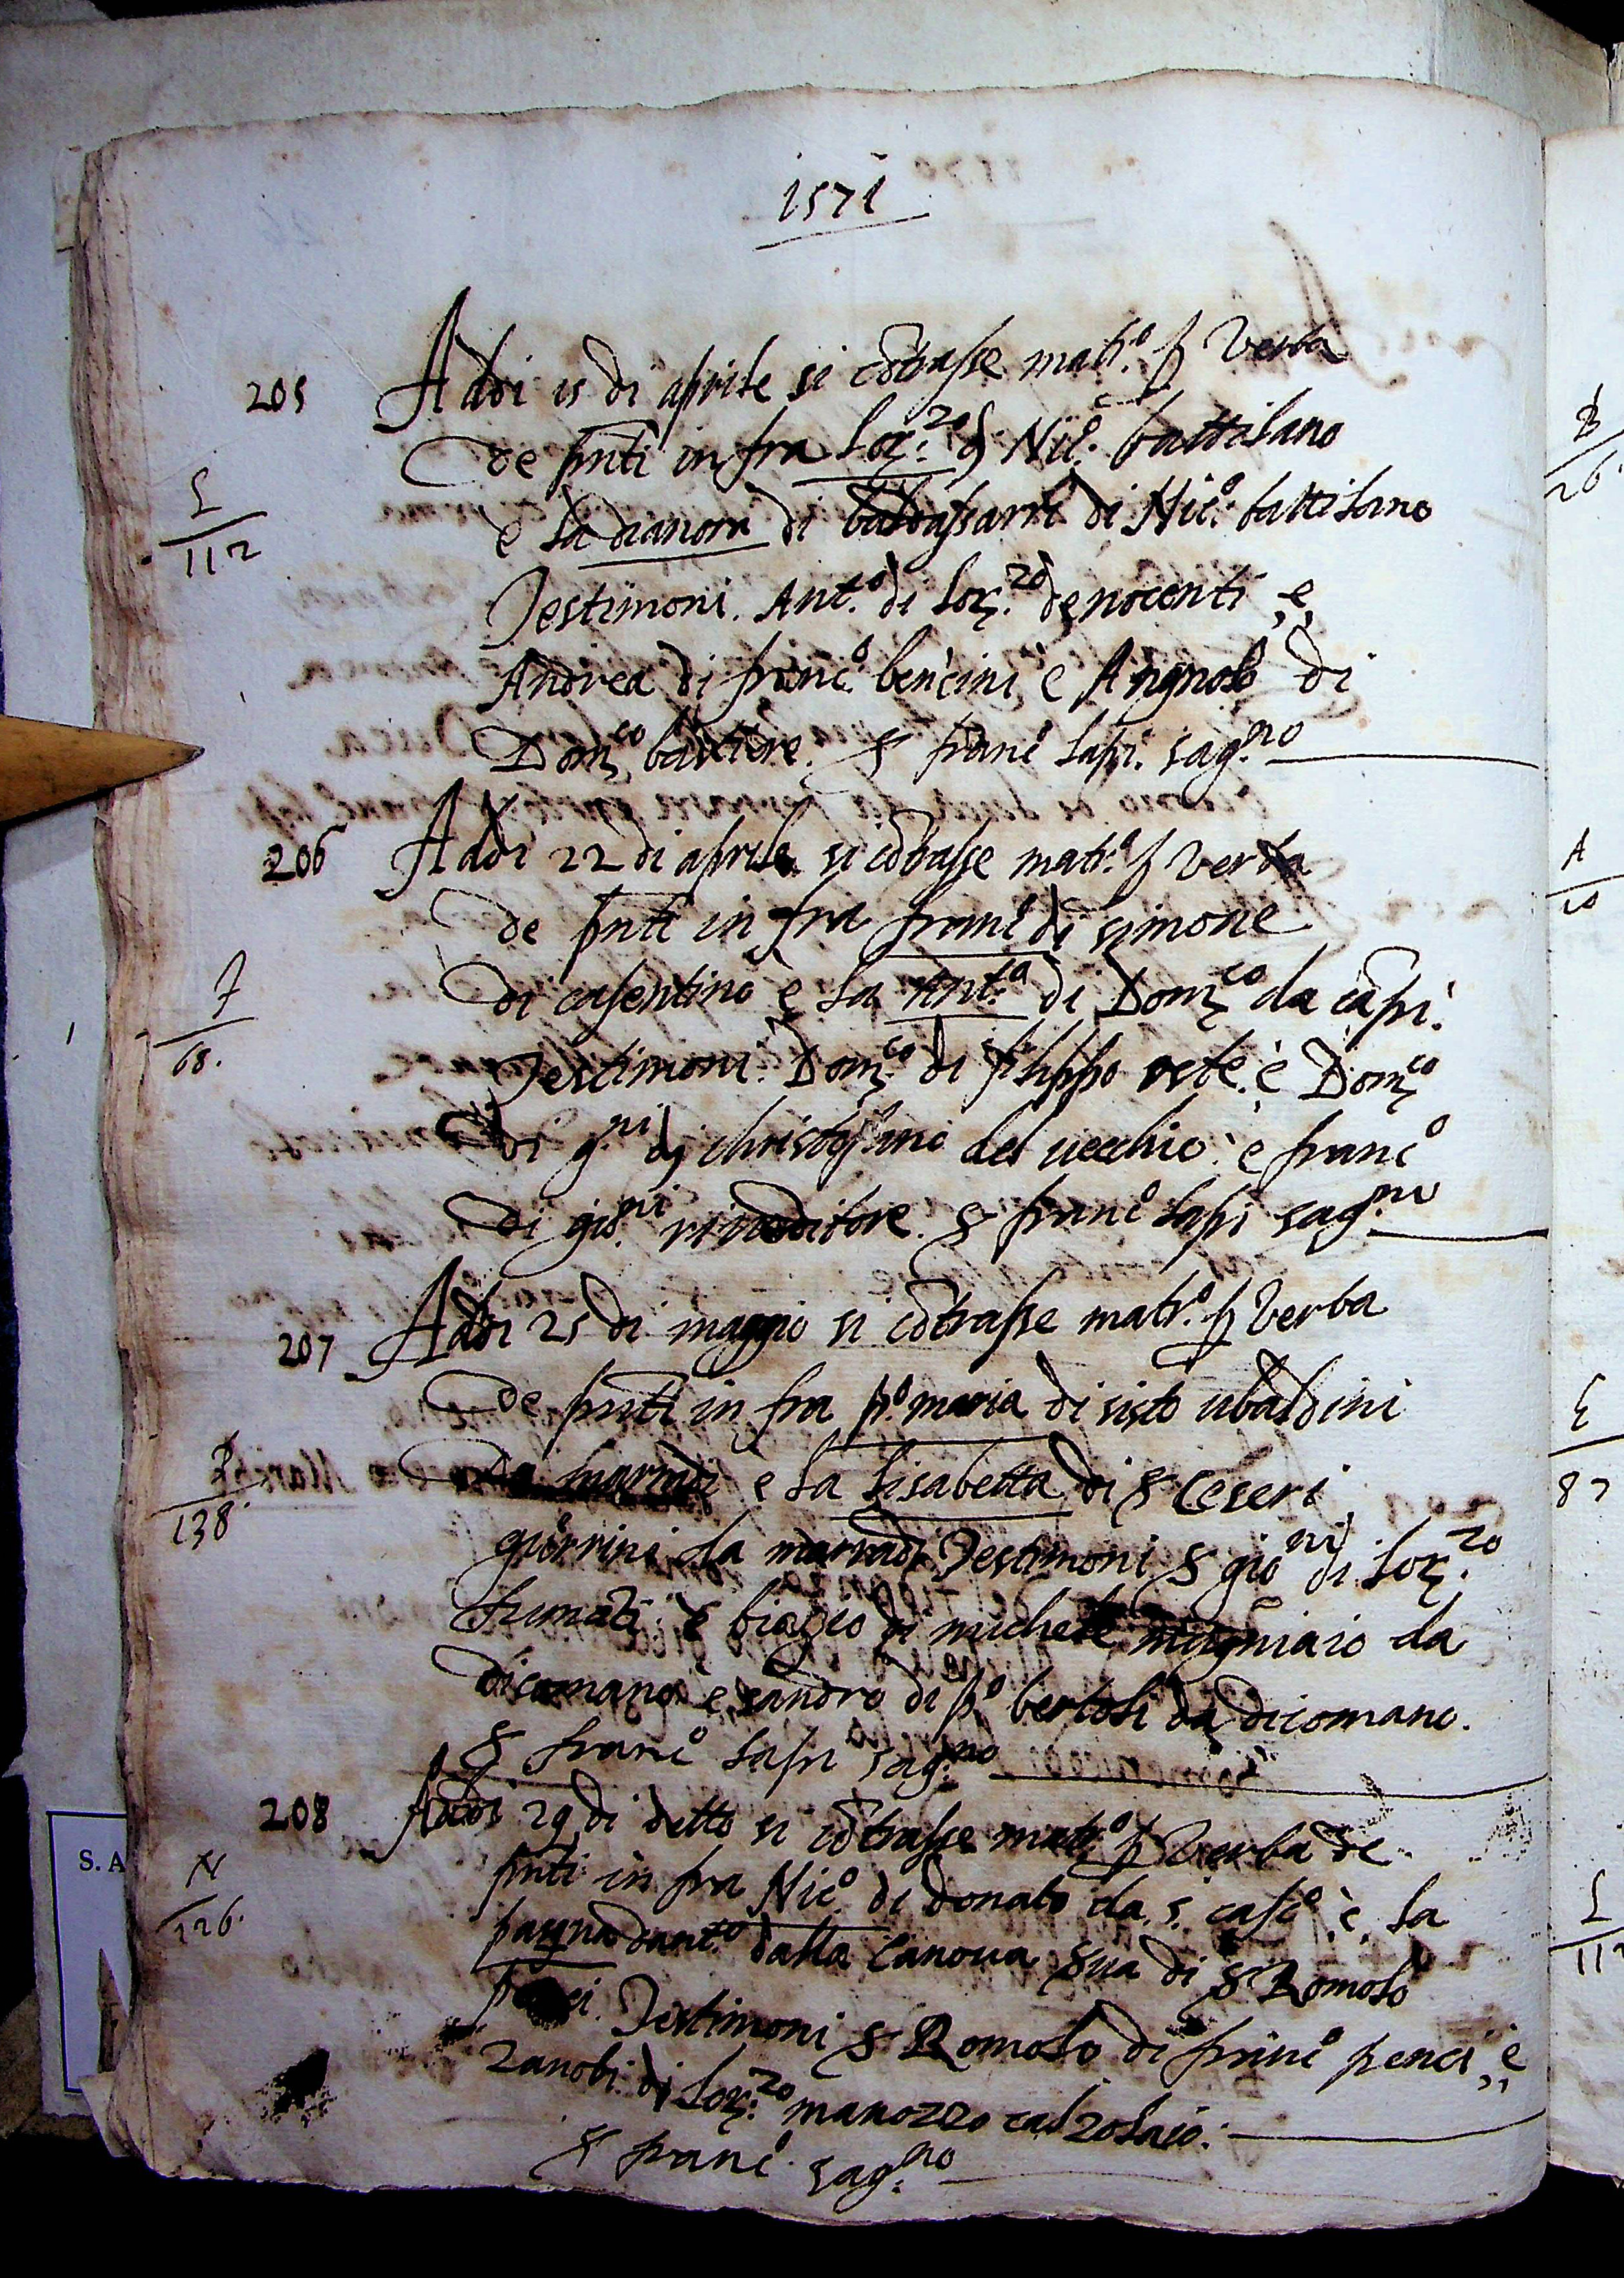 1571
205 Addi 15 di aprile si cōtrasse matr.o p verba
de pnti in fra Lor.zo di Nic.o battilano
L
112
e la dianora di baldassarri di Nic.o battilano
Testimoni. Ant.o di Lor.zo de nocenti e
Andrea di franc.o bencini e Angnolo di
Dom.co barbiere. S franc.o Lapi. sag.no
206 Addi 22 di aprile si cōtrasse matr.o p verba
de pnti in fra franc.o di simone
F
68.
di casentino e la Ant.a di Dom.co da capi.
Testimoni. Dom.co di filippo oste. e Dom.co
di g.ni di christofano del vecchio. e franc.o
di gio.ni rivēditore. S franc.o Lapi sag.no
207 Addi 25 di maggio si cōtrasse matr.o p verba
de pnti in fra p.o maria di sisto ubaldini
P
138.
da marradi e la Lisabetta di S Ceseri
da marradi Testimoni S gio.ni di Lor.zo
e biagio di michele mugniaio da
dicomano e sandro di p.o bertoli da dicomano.
S franc.o Lapi sag.no
208 Addi 29 di detto si cōtrasse matr.o p verba de
pnti in fra Nic.o di donato da. s. casc.o e la
N
126.
dant.o dalla canova sua di S Romolo
Testimoni S Romolo di franc.o penci, e
Zanobi di Lor.zo manozzo calzolaio.
S franc.o sag.no
B
26
A
10
E
87
L
11
S. A